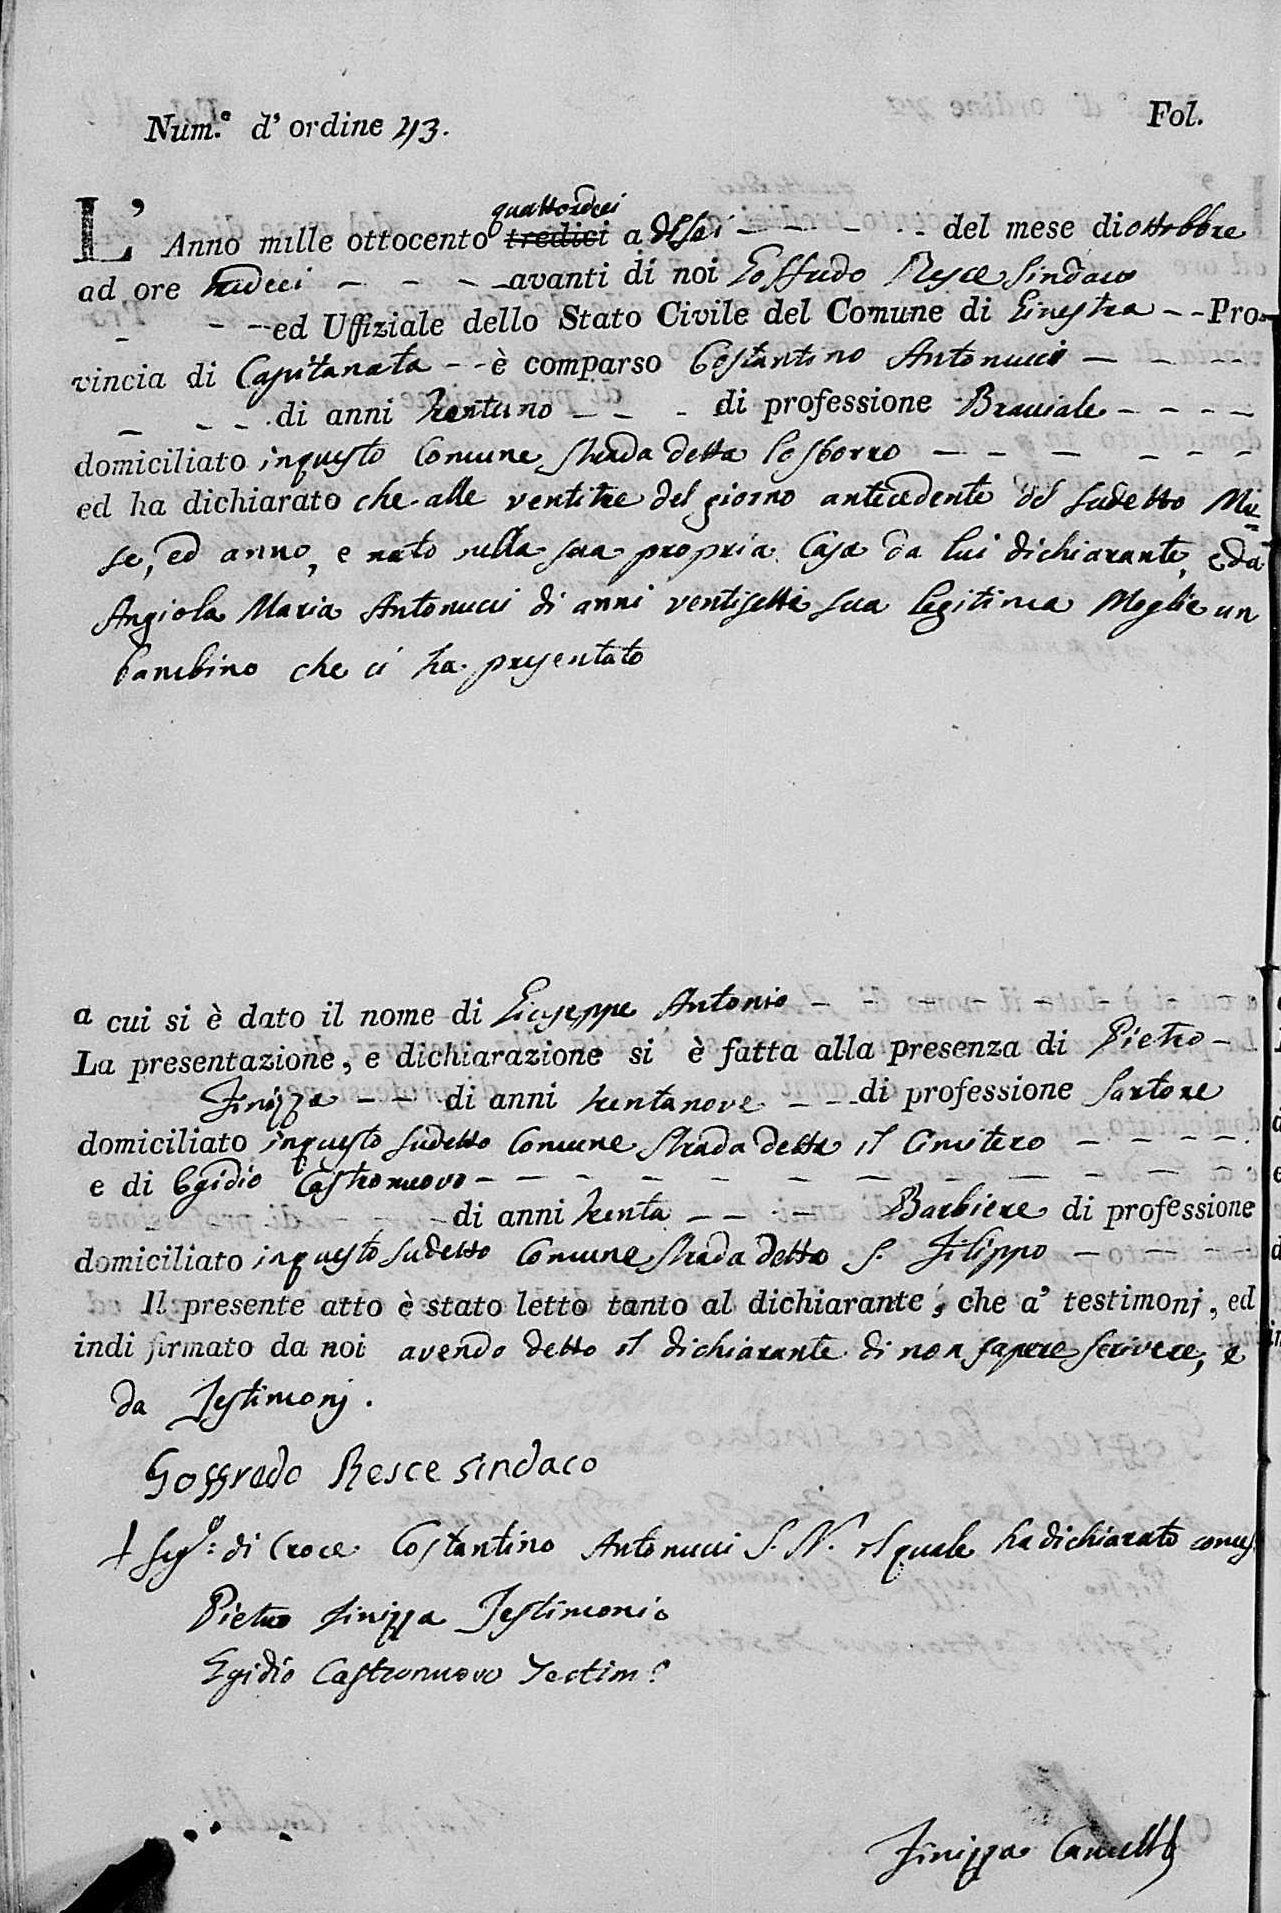 Num.º d' ordine 43.
Fol.
quattordeci
L' Anno mille ottocento tredici a dì sei - - - - - del mese di ottobbre
ad ore tredeci - - - - avanti di noi Goffredo Resce Sindaco
- - - ed Uffiziale dello Stato Civile del Comune di Ginestra - - Pro-
vincia di Capitanata - - è comparso Costantino Antonucci - - - - -
- - - - di anni trentuno - - - - di professione Bracciale - - - -
domiciliato in questo Comune Strada detta - - - - - -
ed ha dichiarato che alle ventitre del giorno antecedente del sudetto Me=
se, ed anno, e nato nella sua propria Casa da lui dichiarante, e da
Angiola Maria Antonucci di anni ventisette sua legitima Moglie un
bambino che ci ha presentato
a cui si è dato il nome di Giuseppe Antonio - - - - - - - -
La presentazione, e dichiarazione si è fatta alla presenza di Pietro - -
Finizza - - - di anni trentanove - - - di professione Sartore
domiciliato in questo sudetto Comune Strada detta il Cimitero - - - - -
e di Egidio Castronuovo - - - - - - - - - -
- - di anni trenta - - - - Barbiere di professione
domiciliato in questo sudetto Comune Strada detta S. Filippo - - - -
Il presente atto è stato letto tanto al dichiarante, che a' testimonj, ed
indi firmato da noi avendo detto il dichiarante di non sapere scrivere, e
da Testimonj.
Goffredo Resce sindaco
+ Seg.º: di Croce Costantino Antonucci S. N. il quale ha dichiarato come s.
Pietro Finizza Testimonio
Egidio Castronuovo Testim.º
Finizza